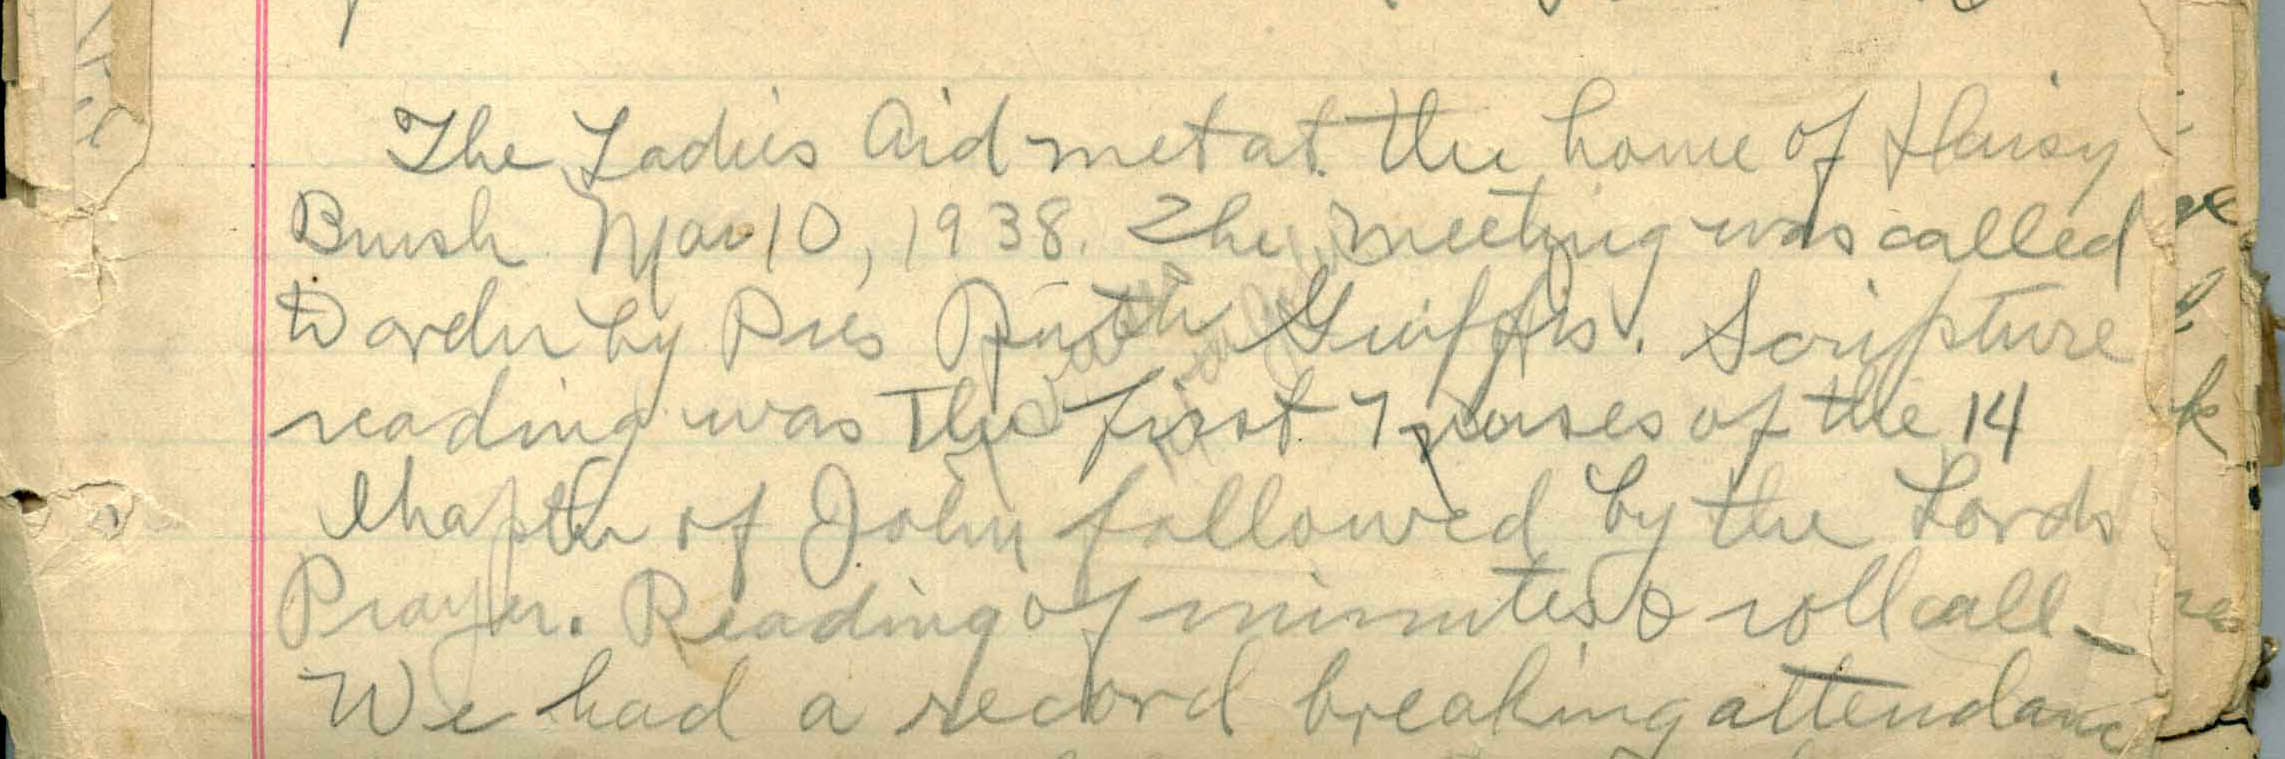 The Ladies Aid met at the home of Daisy
Brush Mar 10, 1938. The meeting was called
to order by Pres Ruth Griffis. Scripture
reading was The first 7 verses of the 14
Chapter of John followed by the Lords
Prayer. Reading of minutes & roll call
We had a record breaking attendance